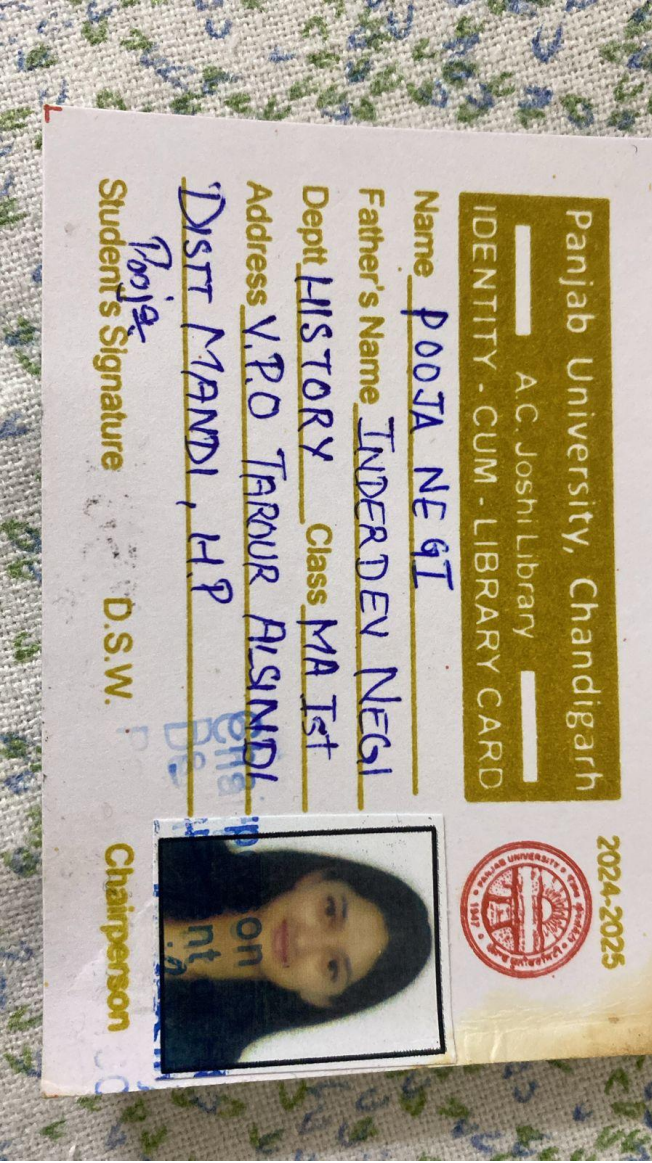 Panjab University, Chandigarh
2024-2025
A.C. Joshi Library
IDENTITY - CUM - LIBRARY CARD
PANJAB UNIVERSITY
1947
Name POOJA NEGI
Father's Name INDERDEV NEGI
Deptt HISTORY Class MA Ist
Address V.P.O TAROUR ALSINDI
DISTT MANDI, H.P
Pooja
Student's Signature D.S.W. Chairperson